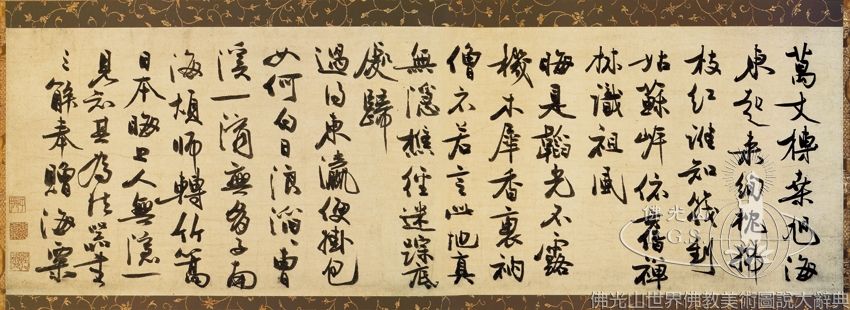 萬丈榑桑旭海
東起來絢枕拂
枝紅誰知筏到
姑蘇岸依舊禪
林識祖風
晦是韜光不露
機木犀香裏衲
僧衣若言此地真
無隱樵徑迷踪底
處歸
過得東瀛便掛包
如何白日浪滔〻曹
溪一滴無多子南
海煩師轉竹篙
日本晦上人無隱一
見知其為法器書
三解奉贈海粟
佛光山
G.S.
佛光山世界佛教美術圖說大辭典